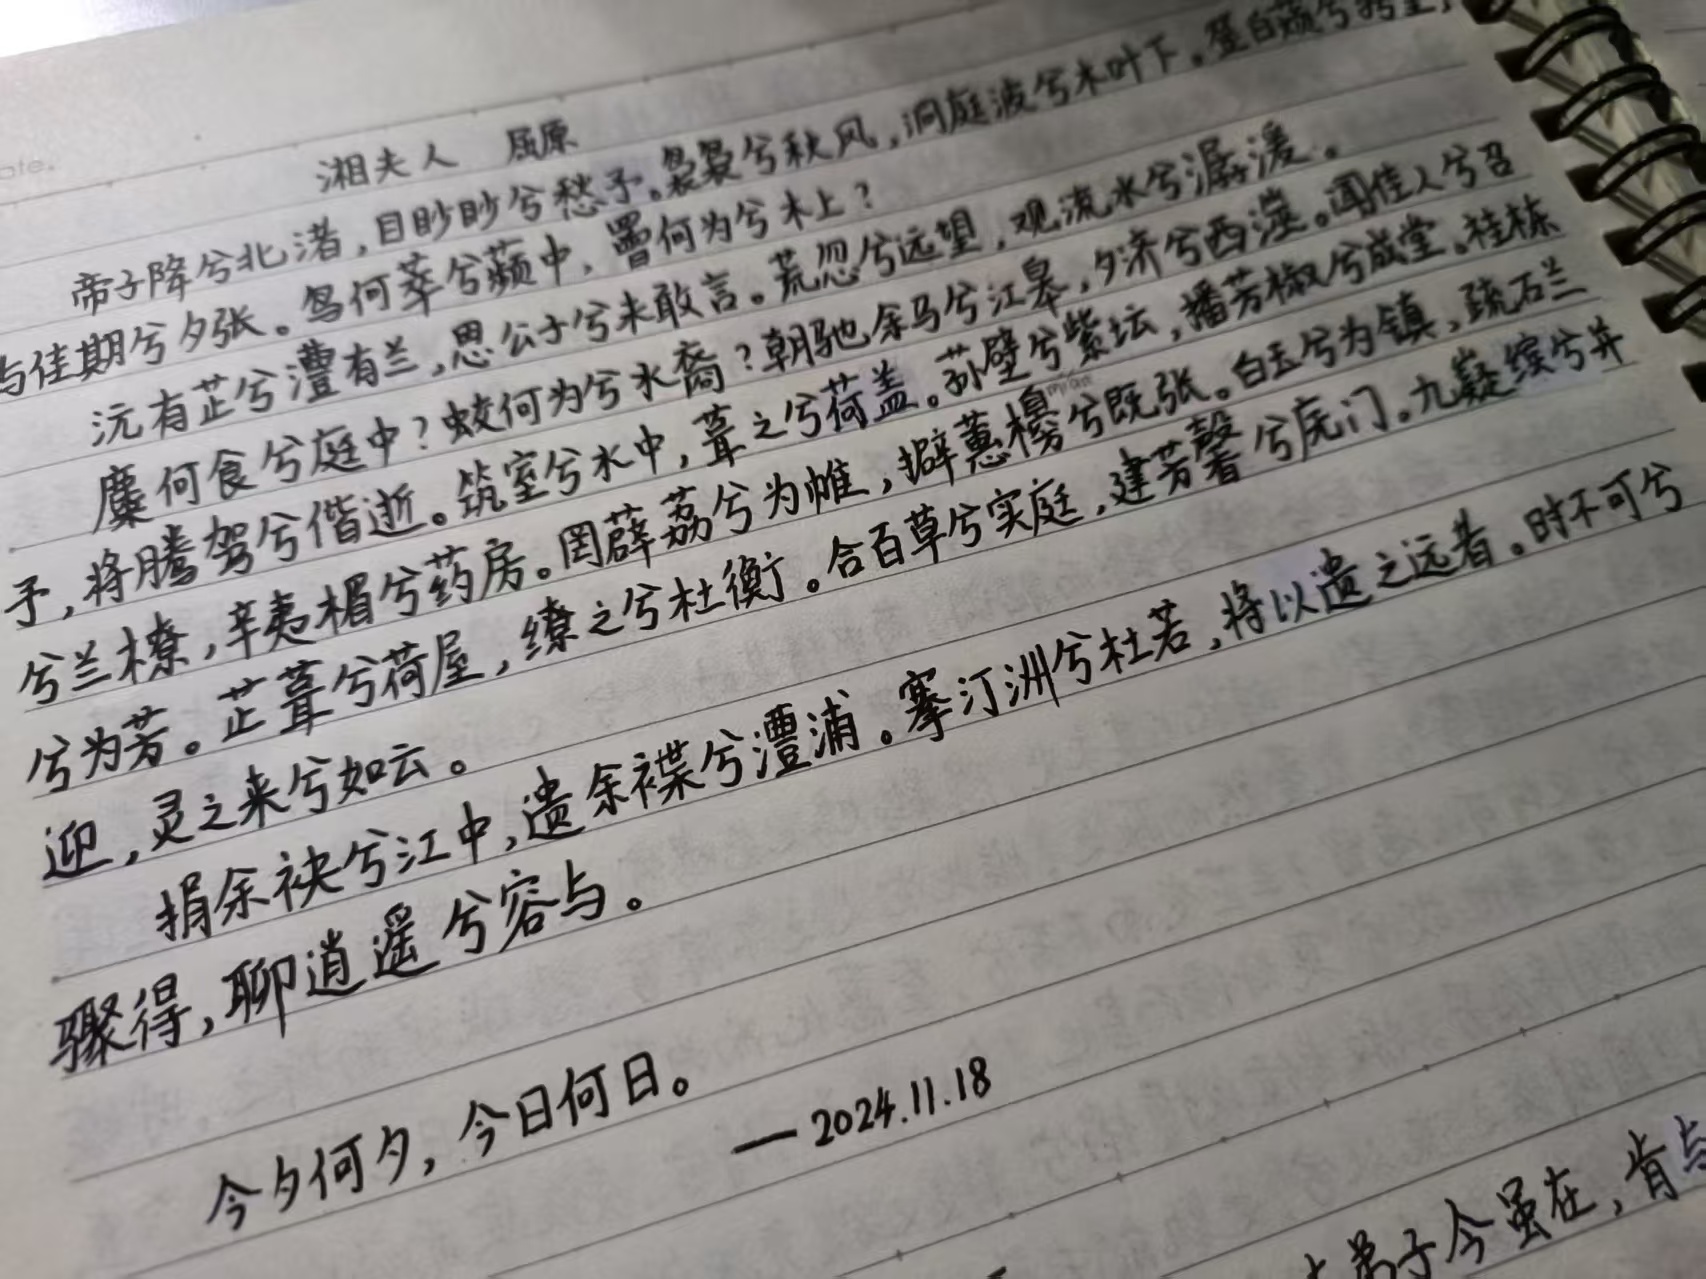 ate.
湘夫人 屈原
帝子降兮北渚，目眇眇兮愁予。袅袅兮秋风，洞庭波兮木叶下。登白薠兮骋望，
与佳期兮夕张。鸟何萃兮蘋中，罾何为兮木上？
沅有芷兮澧有兰，思公子兮未敢言。荒忽兮远望，观流水兮潺湲。
麋何食兮庭中？蛟何为兮水裔？朝驰余马兮江皋，夕济兮西澨。闻佳人兮召
予，将腾驾兮偕逝。筑室兮水中，葺之兮荷盖。荪壁兮紫坛，播芳椒兮成堂。桂栋
兮兰橑，辛夷楣兮药房。罔薜荔兮为帷，擗蕙櫋mián兮既张。白玉兮为镇，疏石兰
兮为芳。芷葺兮荷屋，缭之兮杜衡。合百草兮实庭，建芳馨兮庑门。九嶷缤兮并
迎，灵之来兮如云。
捐余袂兮江中，遗余褋兮澧浦。搴汀洲兮杜若，将以遗之远者。时不可兮
骤得，聊逍遥兮容与。
今夕何夕，今日何日。
—2024.11.18
弟子今虽在，肯与